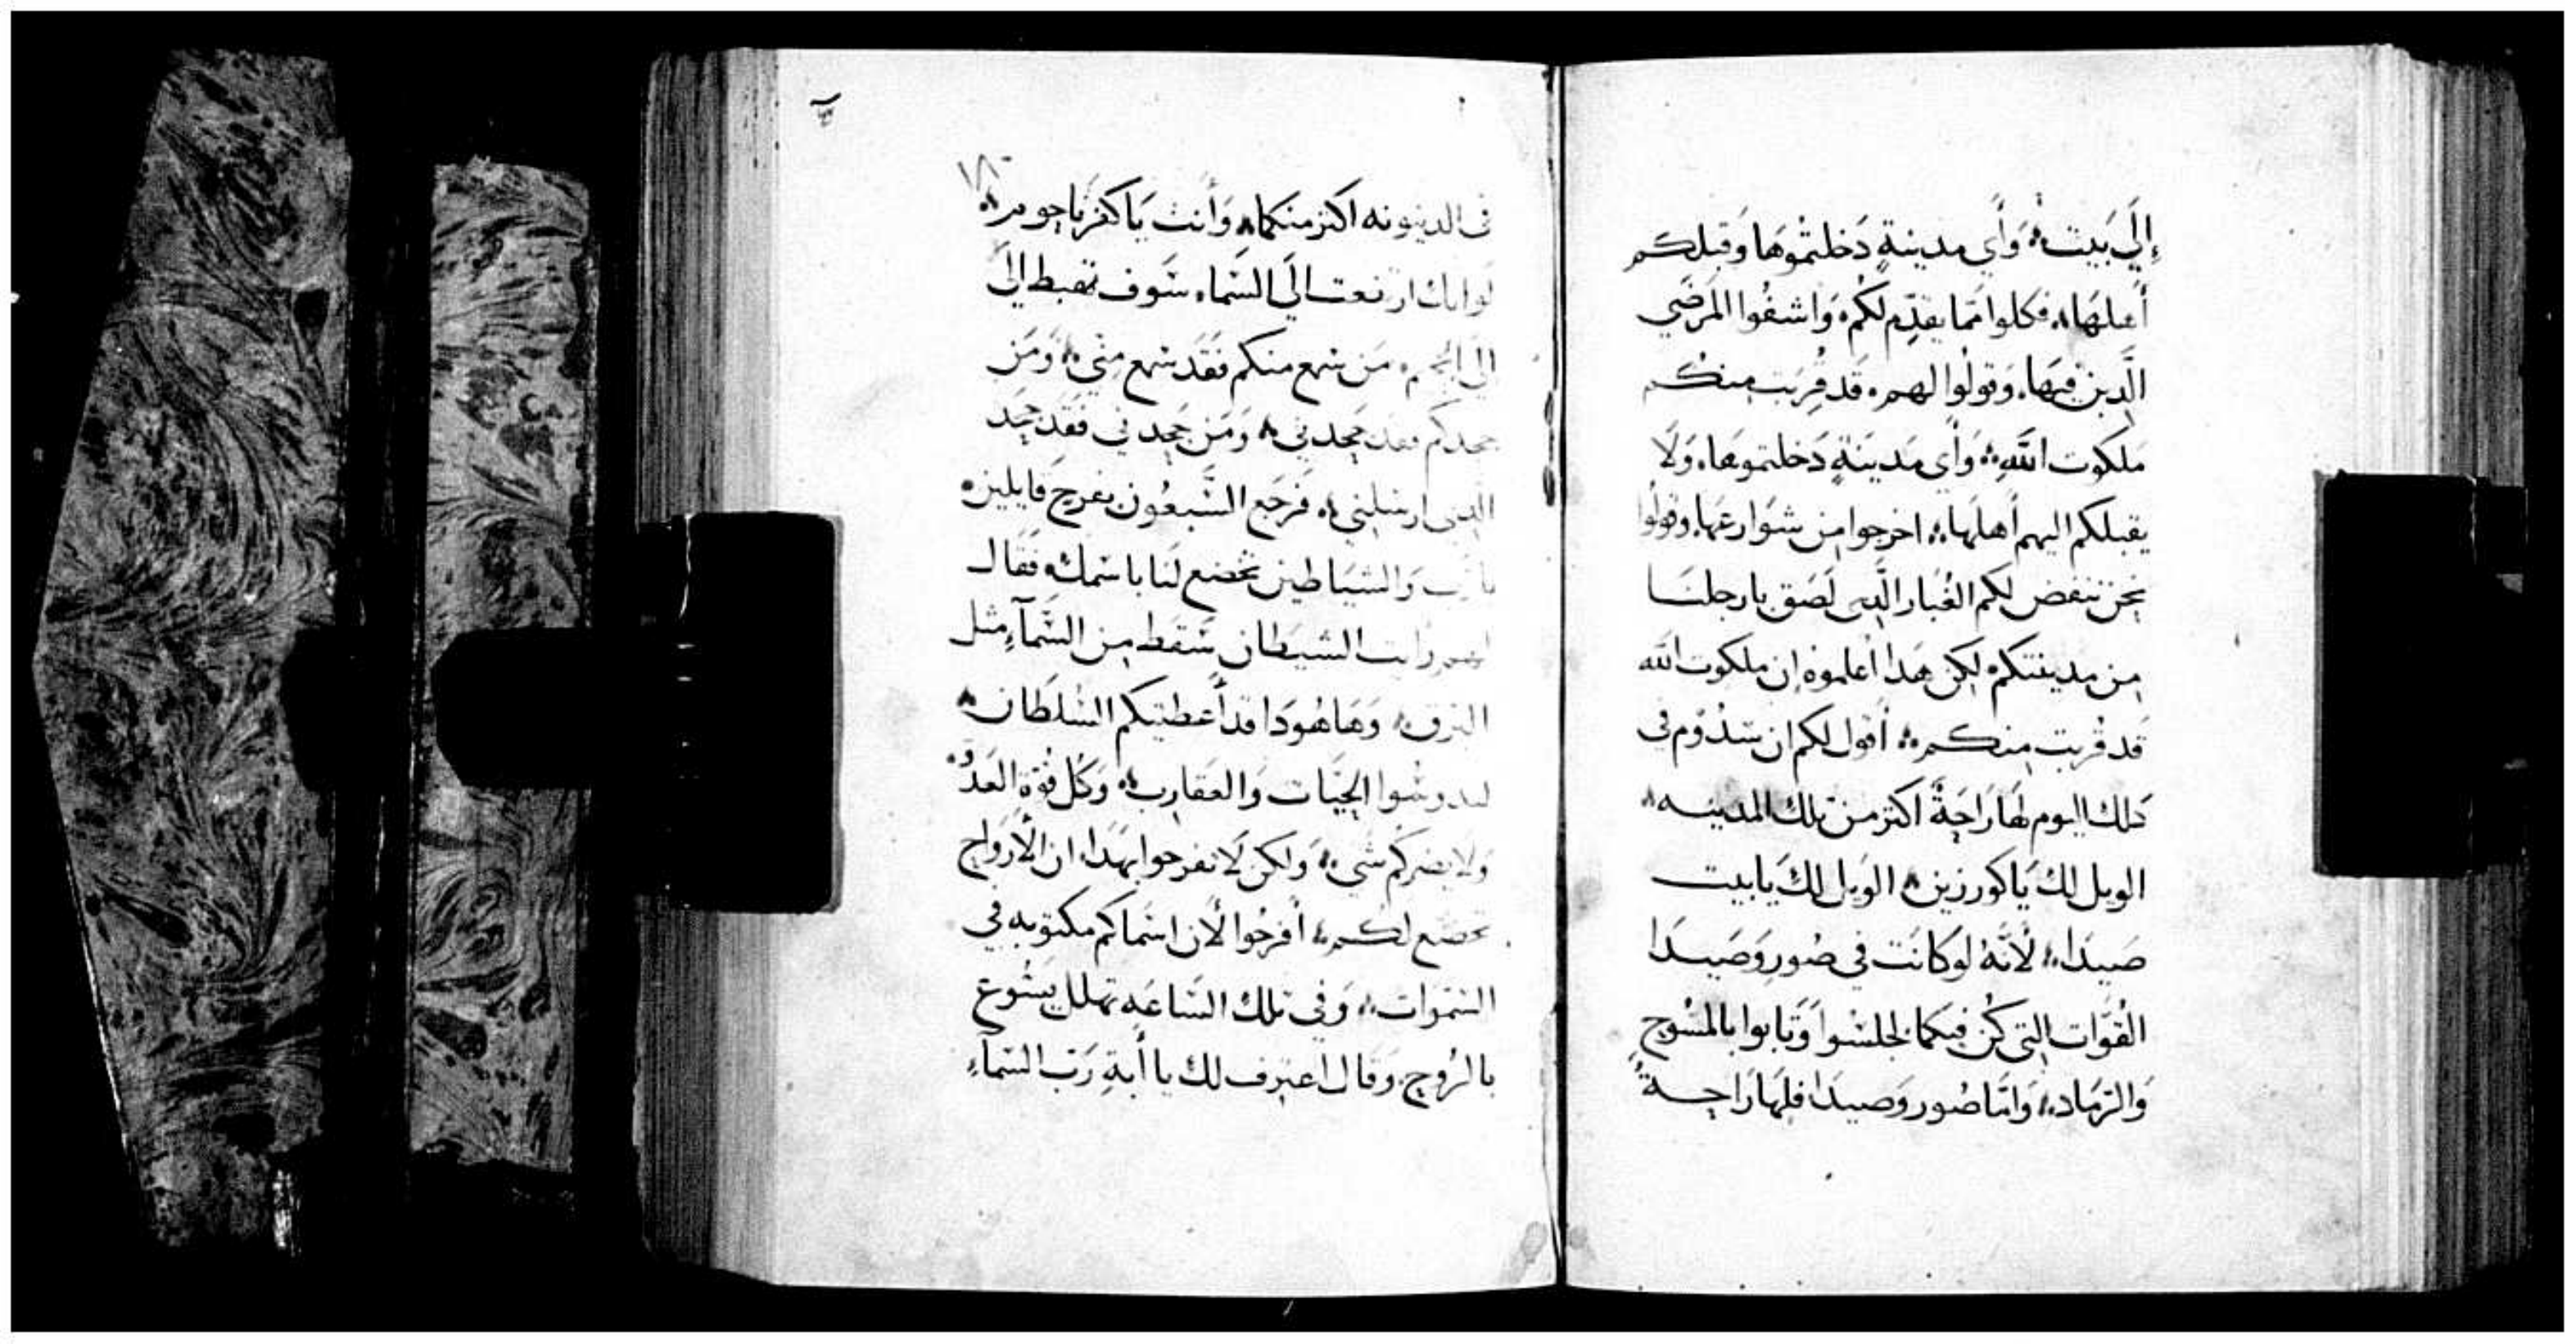 إِلَى بَيت، وَأَي مدينةٍ دَخلتمُوهَا وَقبلكم
أَهلهَا، فكلوا مّما يقدّم لكُم، وَاشفُوا المَرضَى
الَّدين فيهَا، وَقولُوا لهم، قَد قرِبَت منكم
مَلكوت اللَّهِ، وَأَى مَدينَةٍ دَخلتموهَا، وَلَا
يقبلكم اليهم أهلهَا، اخرجوا من شوَارعهَا، وقولُوا
نحن ننفض لكم الغُبَار الَّدى لَصَق بارجلنَا
من مدينتكم، لكن هَدا أعلموه، إن ملكوت الله
قَد قُربت منكم، أقول لكم ان سَدُوم في
دَلك اليوم لهَا رَاحَةً اكثر من تلك المدينه
الويل لك يَا كورزين، الوَيل لك يا بيت
صَيدَا، لأنَّهُ لوكانَت في صُور وَصَيدَا
القُوّات التى كُن فيكما لجلسُوا وَتَابوا بالمسُوح
وَالرّمَاد، وَامّا صُور وَصيدَا فلهَا رَاحةً
١٨٠
فى الدينونه اكثر منكما، وَأنت يَا كفرنَاحوم
لوانك ارتفعت الَى السّماء، سَوف تهبط الَى
الَى الجحيم، مَن سمع منكم فَقَد سمع منّي، وَمَن
جحدكم فقد جحدني، وَمَن جحدني فَقد جحَد
الدى ارسَلني، فَرجَع السَّبعُون بفرح قَايلين
يا رب وَالشيَاطين تخضع لنَا باسمك، فقَال
لهم رَايت الشيطَان سَقط من السّمآءِ مثل
البرق، وَهَا هُودَا قد أَعطيتكم السُلطَان
لتدوسُوا الحيّات وَالعقَارب، وَكُل قُوّة العَدُّو
وَلا يضركم شَي، وَلكن لَا تفرحوا بهَدا، ان الأَروَاح
تخضع لكم، أفرحُوا لأن اسمَاكم مكتوبه في
السّموَات، وَفي تلك السَاعَه تهلل يسُوع
بالرُوح، وَقَال اعترف لك يا أَبةِ رَبّ السّماءِ